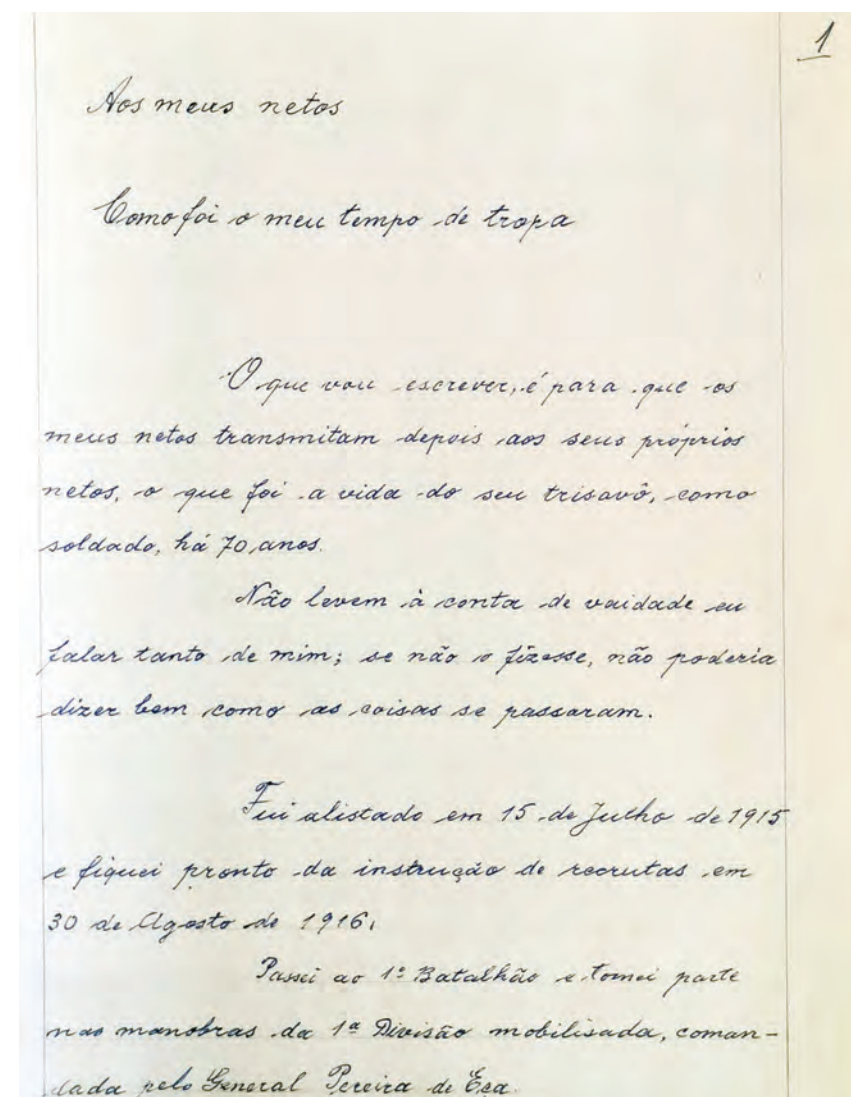 1
Aos meus netos
Como foi o meu tempo de tropa
O que vou escrever, é para que os
meus netos transmitam depois aos seus próprios
netos, o que foi a vida do seu trisavô, como
soldado, há 70 anos.
Não levem à conta de vaidade eu
falar tanto de mim; se não o fizesse, não poderia
dizer bem como as coisas se passaram.
Fui alistado em 15 de Julho de 1915
e fiquei pronto da instrução de recrutas em
30 de Agosto de 1916.
Passei ao 1º Batalhão e tomei parte
nas manobras da 1ª Divisão mobilisada, coman-
dada pelo General Pereira de Eça.